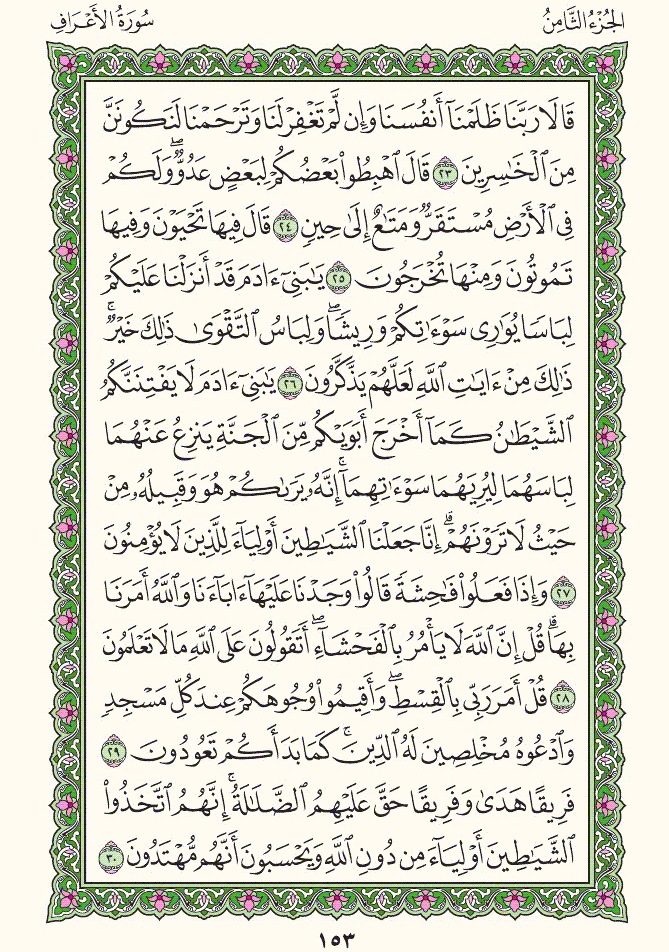 الجُزْءُ الثَّامِنُ
سُورَةُ الأَعْرَافِ
قَالَا رَبَّنَا ظَلَمْنَآ أَنفُسَنَا وَإِن لَّمْ تَغْفِرْ لَنَا وَتَرْحَمْنَا لَنَكُونَنَّ
مِنَ ٱلْخَٰسِرِينَ ٢٣ قَالَ ٱهْبِطُوا۟ بَعْضُكُمْ لِبَعْضٍ عَدُوٌّۖ وَلَكُمْ
فِى ٱلْأَرْضِ مُسْتَقَرٌّ وَمَتَٰعٌ إِلَىٰ حِينٍ ٢٤ قَالَ فِيهَا تَحْيَوْنَ وَفِيهَا
تَمُوتُونَ وَمِنْهَا تُخْرَجُونَ ٢٥ يَٰبَنِىٓ ءَادَمَ قَدْ أَنزَلْنَا عَلَيْكُمْ
لِبَاسًا يُوَٰرِى سَوْءَٰتِكُمْ وَرِيشًاۖ وَلِبَاسُ ٱلتَّقْوَىٰ ذَٰلِكَ خَيْرٌۚ
ذَٰلِكَ مِنْ ءَايَٰتِ ٱللَّهِ لَعَلَّهُمْ يَذَّكَّرُونَ ٢٦ يَٰبَنِىٓ ءَادَمَ لَا يَفْتِنَنَّكُمُ
ٱلشَّيْطَٰنُ كَمَآ أَخْرَجَ أَبَوَيْكُم مِّنَ ٱلْجَنَّةِ يَنزِعُ عَنْهُمَا
لِبَاسَهُمَا لِيُرِيَهُمَا سَوْءَٰتِهِمَآۚ إِنَّهُۥ يَرَىٰكُمْ هُوَ وَقَبِيلُهُۥ مِنْ
حَيْثُ لَا تَرَوْنَهُمْۗ إِنَّا جَعَلْنَا ٱلشَّيَٰطِينَ أَوْلِيَآءَ لِلَّذِينَ لَا يُؤْمِنُونَ
٢٧ وَإِذَا فَعَلُوا۟ فَٰحِشَةً قَالُوا۟ وَجَدْنَا عَلَيْهَآ ءَابَآءَنَا وَٱللَّهُ أَمَرَنَا
بِهَاۗ قُلْ إِنَّ ٱللَّهَ لَا يَأْمُرُ بِٱلْفَحْشَآءِۖ أَتَقُولُونَ عَلَى ٱللَّهِ مَا لَا تَعْلَمُونَ
٢٨ قُلْ أَمَرَ رَبِّى بِٱلْقِسْطِۖ وَأَقِيمُوا۟ وُجُوهَكُمْ عِندَ كُلِّ مَسْجِدٍ
وَٱدْعُوهُ مُخْلِصِينَ لَهُ ٱلدِّينَۚ كَمَا بَدَأَكُمْ تَعُودُونَ ٢٩
فَرِيقًا هَدَىٰ وَفَرِيقًا حَقَّ عَلَيْهِمُ ٱلضَّلَٰلَةُۚ إِنَّهُمُ ٱتَّخَذُوا۟
ٱلشَّيَٰطِينَ أَوْلِيَآءَ مِن دُونِ ٱللَّهِ وَيَحْسَبُونَ أَنَّهُم مُّهْتَدُونَ ٣٠
١٥٣